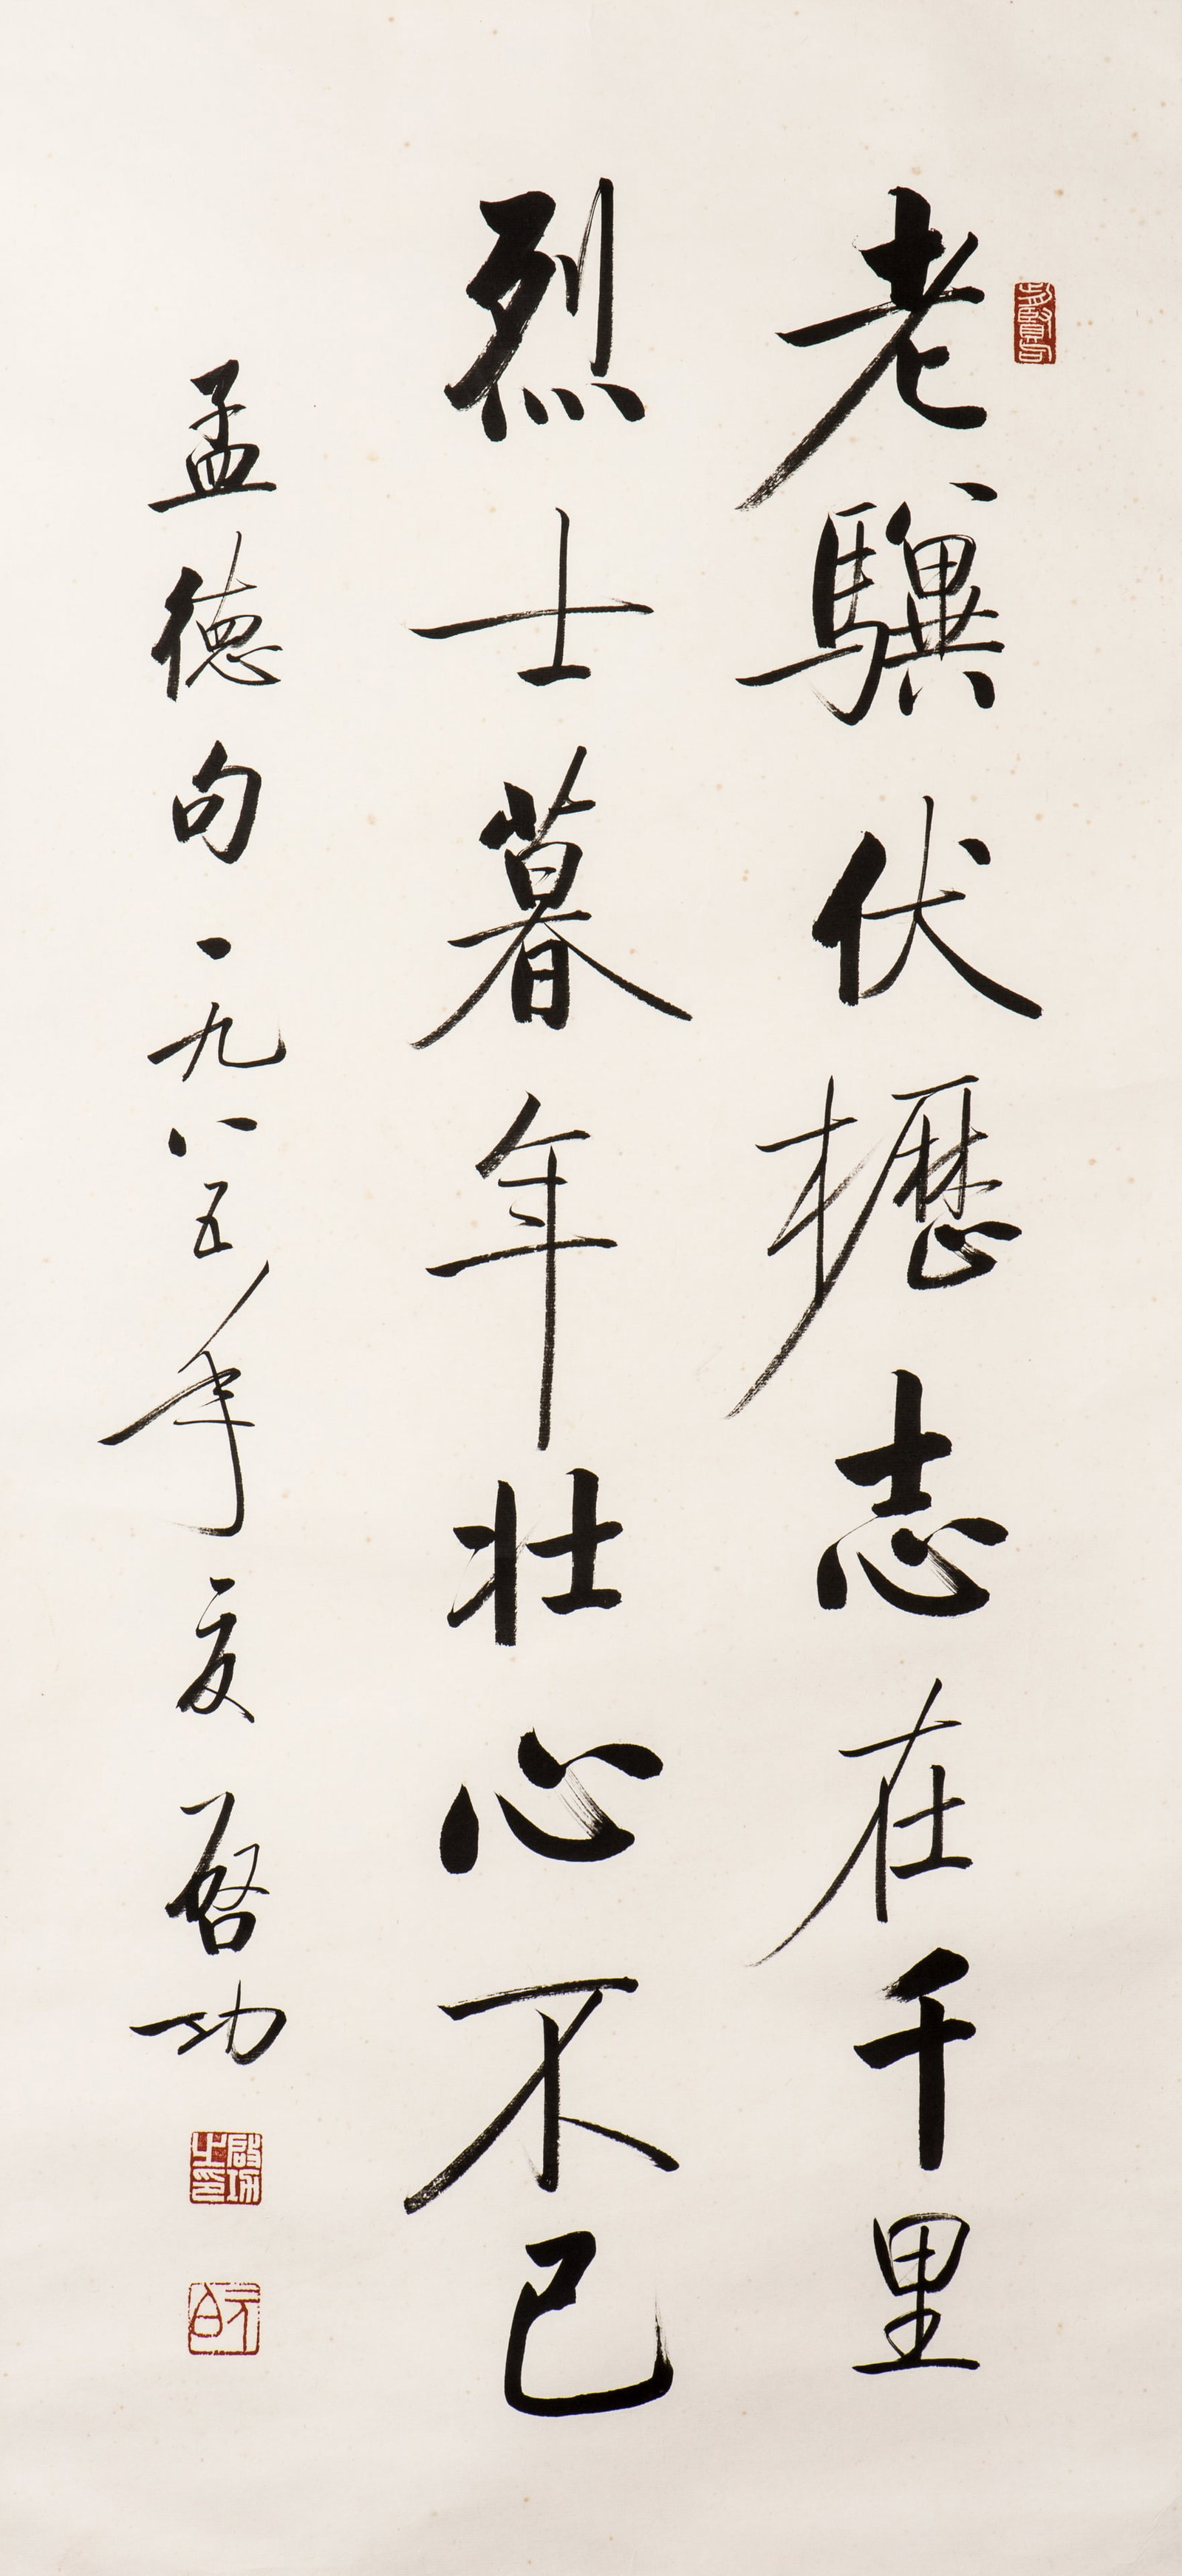 老驥伏櫪志在千里
烈士暮年壯心不已
孟德句一九八五年夏啓功
啟功之印
元白